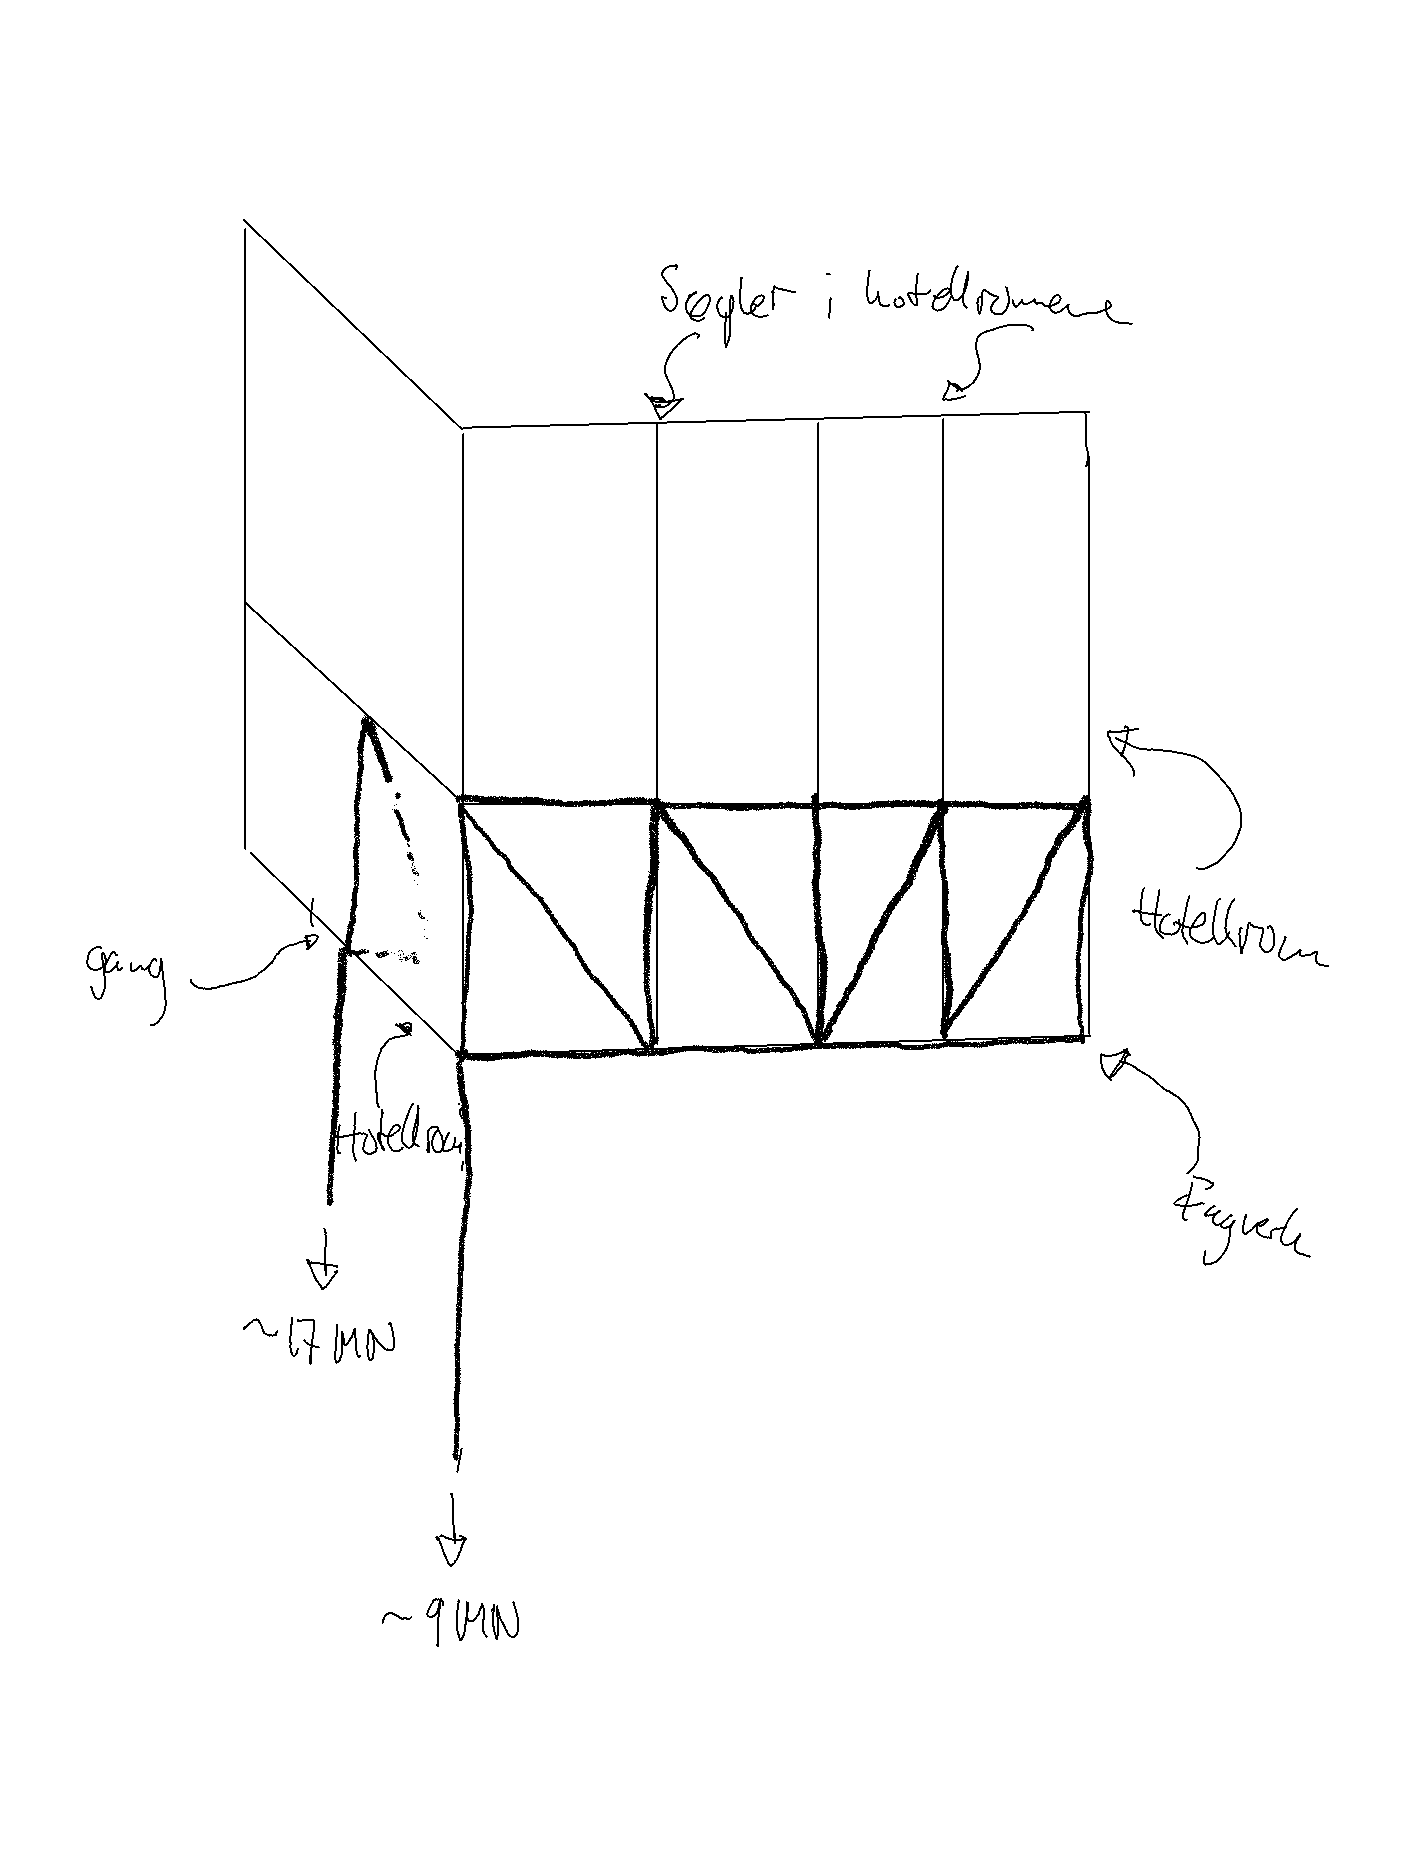 Søyler i hotellrommene
Hotellrom
gang
Hotellrom
Fagverk
~17 MN
~9 MN